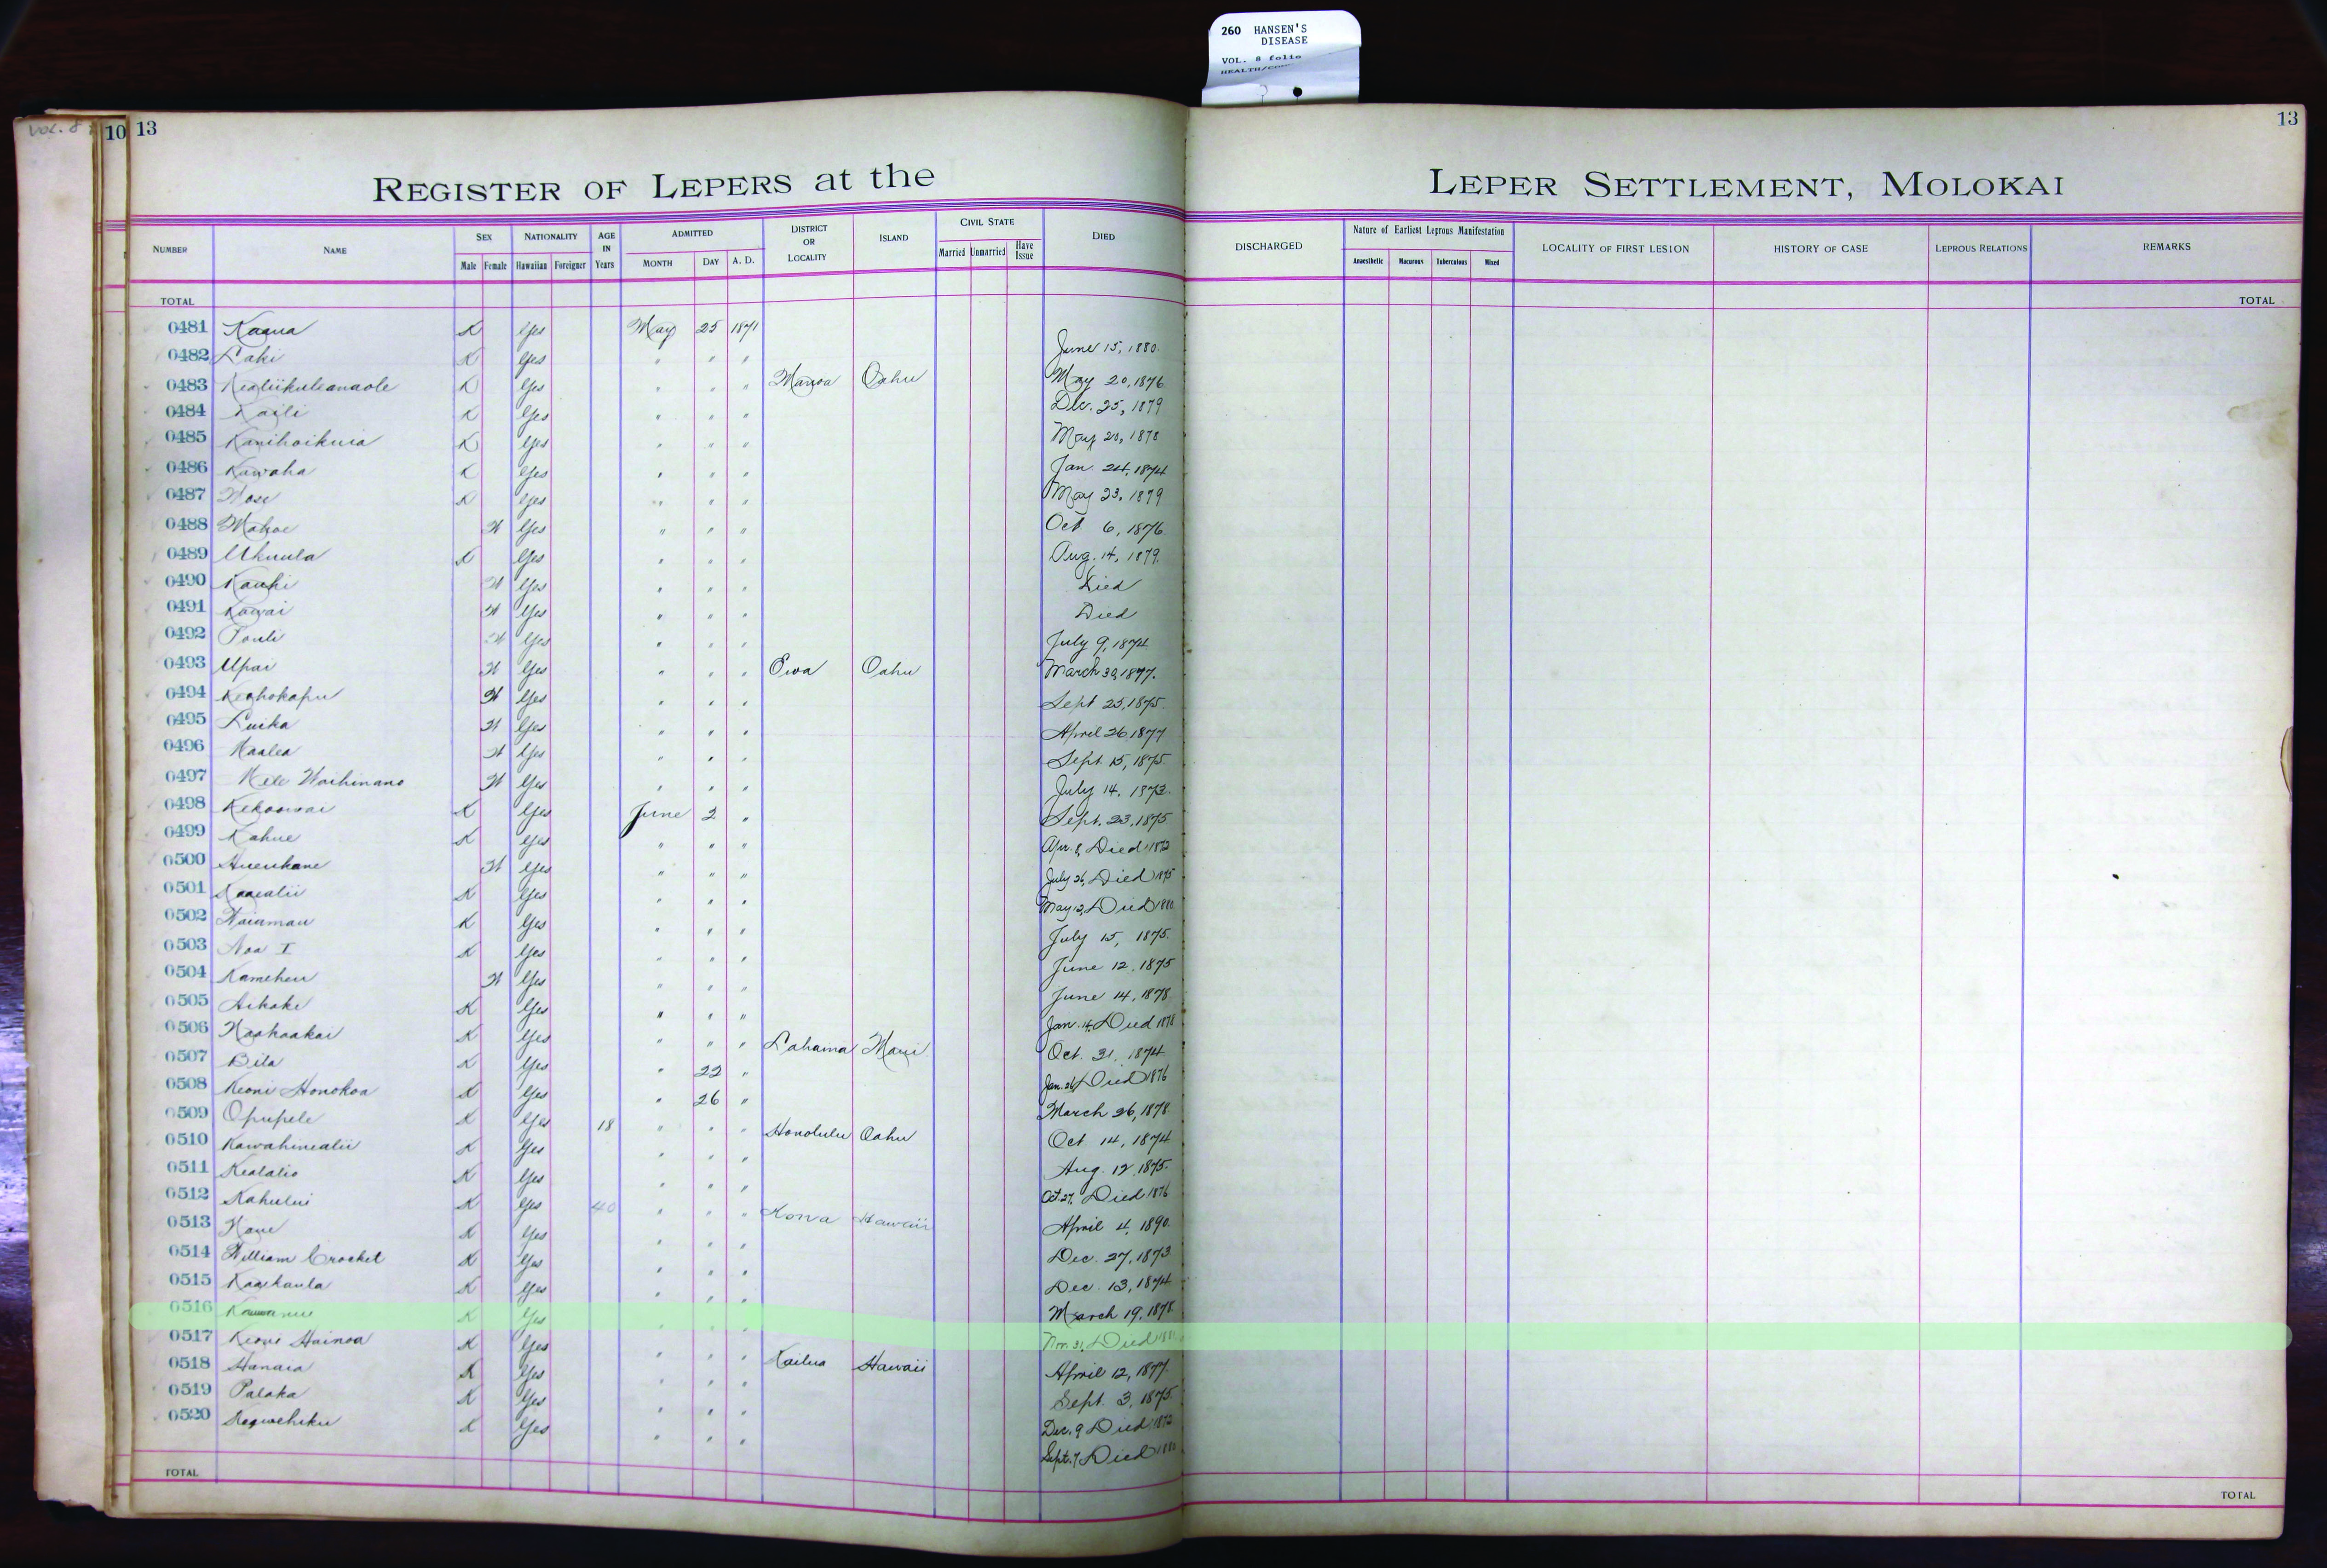 260 HANSEN'S
DISEASE
VOL. 8 folio
VOL. 8
10 13
13
REGISTER OF LEPERS at the LEPER SETTLEMENT, MOLOKAI
NUMBER NAME SEX NATIONALITY AGE IN Years ADMITTED DISTRICT OR LOCALITY ISLAND CIVIL STATE DIED DISCHARGED Nature of Earliest Leprous Manifestation LOCALITY OF FIRST LESION HISTORY OF CASE LEPROUS RELATIONS REMARKS
Male Female Hawaiian Foreigner MONTH DAY A. D. Married Unmarried Have Issue Anaesthetic Macurous Tuberculous Mixed
TOTAL TOTAL
0481 Kaaua K Yes May 25 1871
0482 Laki K Yes " " " June 15, 1880.
0483 Kealiikuleanaole K Yes " " " Manoa Oahu May 20, 1876
0484 Kaili K Yes " " " Dec. 25, 1879
0485 Kanihoikuia K Yes " " " May 20, 1878
0486 Kawaha K Yes " " " Jan. 24, 1874
0487 Wose K Yes " " " May 23, 1879
0488 Mahoe W Yes " " " Oct 6, 1876.
0489 Ukuula K Yes " " " Aug. 14, 1879.
0490 Kauhi W Yes " " " Died
0491 Kawai W Yes " " " Died
0492 Pouli W Yes " " " July 9, 1874
0493 Upai W Yes " " " Ewa Oahu March 30, 1877.
0494 Keahokapu W Yes " " " Sept 25, 1875.
0495 Luika W Yes " " " April 26 1877
0496 Maalea W Yes " " " Sept. 15, 1875.
0497 Mele Waihinano W Yes " " " July 14, 1873.
0498 Kekoowai K Yes June 2 " Sept. 23, 1875
0499 Kahue K Yes " " " Apr. 8, Died 1872
0500 Hueukane W Yes " " " July 26, Died 1875
0501 Kaaealii K Yes " " " May 12, Died 1880
0502 Waiamau K Yes " " " July 15, 1875.
0503 Noa I K Yes " " " June 12, 1875
0504 Kameheu W Yes " " " June 14, 1878
0505 Aikake K Yes " " " Jan. 14, Died 1878
0506 Naahaakai K Yes " " " Lahaina Maui Oct. 31, 1874
0507 Bila K Yes " 22 " Jan. 26, Died 1876
0508 Keoni Honokoa K Yes " 26 " March 26, 1878
0509 Opupele K Yes 18 " " " Honolulu Oahu Oct 14, 1874
0510 Kawahinealii K Yes " " " Aug. 12, 1875.
0511 Kealalio K Yes " " " Oct. 27, Died 1876
0512 Kahului K Yes 40 " " " Kona Hawaii April 4, 1890.
0513 Naue K Yes " " " Dec. 27, 1873
0514 William Crocket K Yes " " " Dec. 13, 1874
0515 Kaaikaula K Yes " " " March 19, 1878
0516 K Yes " " " Nov. 31, Died
0517 Keoni Hainoa K Yes " " " Kailua Hawaii April 12, 1877.
0518 Hanaia K Yes " " " Sept. 3, 1875
0519 Palaka K Yes " " " Dec. 9 Died 1872
0520 K Yes " " " Sept. 7 Died 1880
TOTAL TOTAL